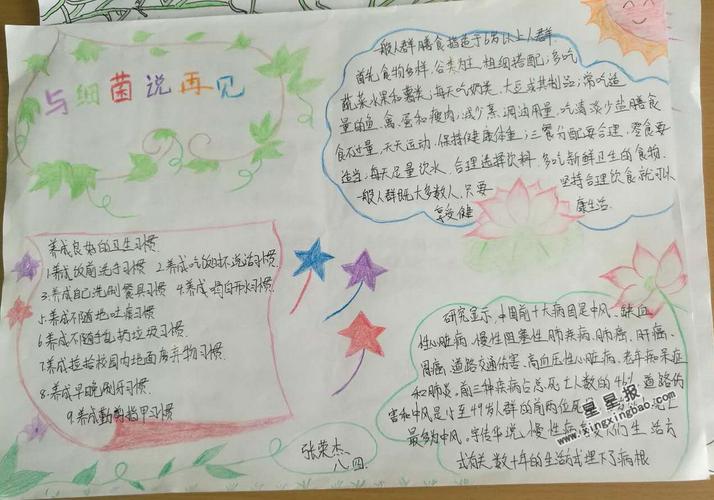 与细菌说再见
一般人群膳食指适于6岁以上人群
首先食物多样,谷类为主,粗细搭配;多吃
蔬菜水果和薯类;每天吃奶类、大豆或其制品;常吃适
量的鱼、禽、蛋和瘦肉;减少烹调油用量,吃清淡少盐膳食
食不过量,天天运动,保持健康体重;三餐分配要合理,零食要
适当;每天足量饮水,合理选择饮料,多吃新鲜卫生的食物.
一般人群既大多数人,只要 坚持合理饮食就可以
享受健 康生活.
养成良好的卫生习惯
1.养成饭前洗手习惯 2.养成吃饭时不说话习惯.
3.养成自己洗刷餐具习惯 4.养成喝白开水习惯
5.养成不随地吐痰习惯
6.养成不随手乱扔垃圾习惯.
7.养成捡拾校园内地面废弃物习惯.
8.养成早晚刷牙习惯
9.养成勤剪指甲习惯
研究显示,中国前十大病因是中风、缺血
性心脏病、慢性阻塞性肺疾病、肺癌、肝癌、
胃癌、道路交通伤害、高血压性心脏病、老年痴呆症
和肺炎。前三种疾病占总死亡人数的46%道路伤
害和中风是15至49岁人群的前两位死
最多为中风。宋传华说,慢性病 人们生活方
式有关,数十年的生活方式埋下了病根
张荣杰
八四
星星报
www.xingxingbao.com